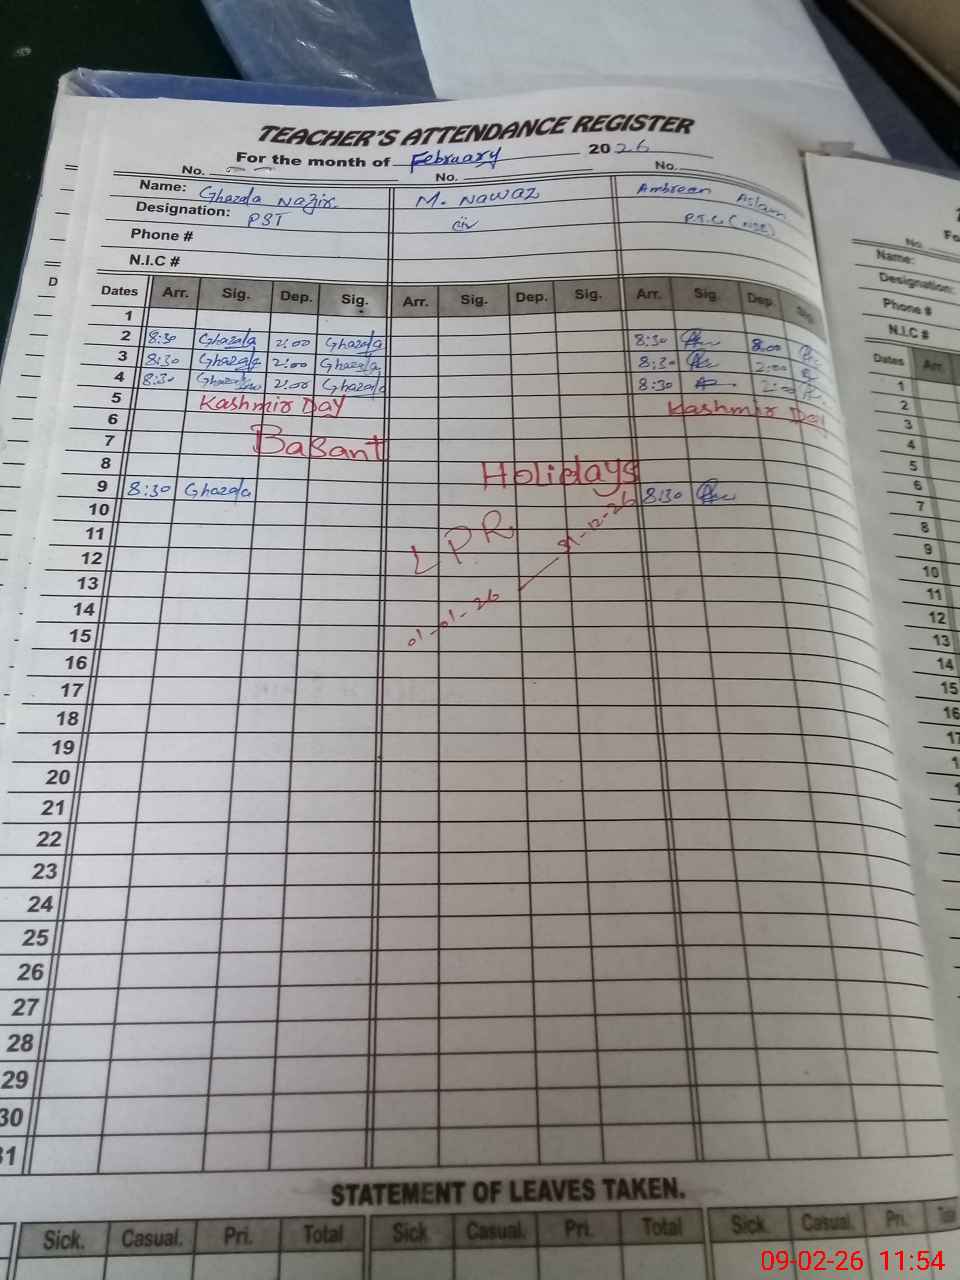 TEACHER'S ATTENDANCE REGISTER
For the month of February 2026
No. No. No.
Name: Ghazala Nazir M. Nawaz Ambreen Aslam
Designation: PST
Phone #
N.I.C #
Dates Arr. Sig. Dep. Sig. Arr. Sig. Dep. Sig. Arr. Sig. Dep. Sig.
1
2 8:30 Ghazala 2:00 Ghazala 8:30
3 8:30 Ghazala 2:00 Ghazala 8:30 2:00
4 8:30 Ghazala 2:00 Ghazala 8:30
5 Kashmir Day Kashmir Day
6
7 Basant
8 Holidays
9 8:30 Ghazala 8:30
10
11 LPR
12 01-01-26 31-12-26
13
14
15
16
17
18
19
20
21
22
23
24
25
26
27
28
29
30
31
STATEMENT OF LEAVES TAKEN.
Sick. Casual. Pri. Total Sick. Casual. Pri. Total Sick. Casual. Pri. Total
No.
Name:
Designation:
Phone #
N.I.C #
Dates Arr.
1
2
3
4
5
6
7
8
9
10
11
12
13
14
15
16
17
09-02-26 11:54